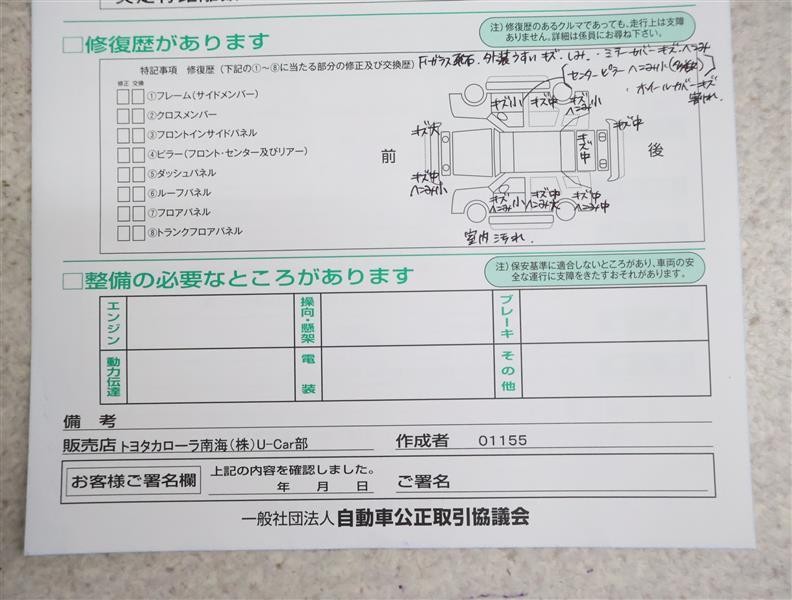 □修復歴があります
注)修復歴のあるクルマであっても、走行上は支障
ありません。詳細は係員にお尋ね下さい。
特記事項 修復歴(下記の①～⑧に当たる部分の修正及び交換歴)
Fガラス飛石、外装うすいキズ、しみ、・ミラーカバーキズ、ヘコみ
センターピラーヘこみ小
・ホイールカバーキズ
割れ、
修正 交換
①フレーム(サイドメンバー)
②クロスメンバー
③フロントインサイドパネル
④ピラー(フロント・センター及びリアー)
⑤ダッシュパネル
⑥ルーフパネル
⑦フロアパネル
⑧トランクフロアパネル
前
後
キズ小
キズ中
キズ
ヘこみ小
キズ大
キズ中
キズ中
キズ中
ヘこみ小
キズ小
キズ中
ヘこみ大
キズ中
ヘこみ中
室内汚れ、
□整備の必要なところがあります
注)保安基準に適合しないところがあり、車両の安
全な運行に支障をきたすおそれがあります。
エンジン
操向・懸架
ブレーキ
動力伝達
電装
その他
備考
販売店 トヨタカローラ南海(株)U-Car部
作成者 01155
お客様ご署名欄
上記の内容を確認しました。
年 月 日
ご署名
一般社団法人 自動車公正取引協議会